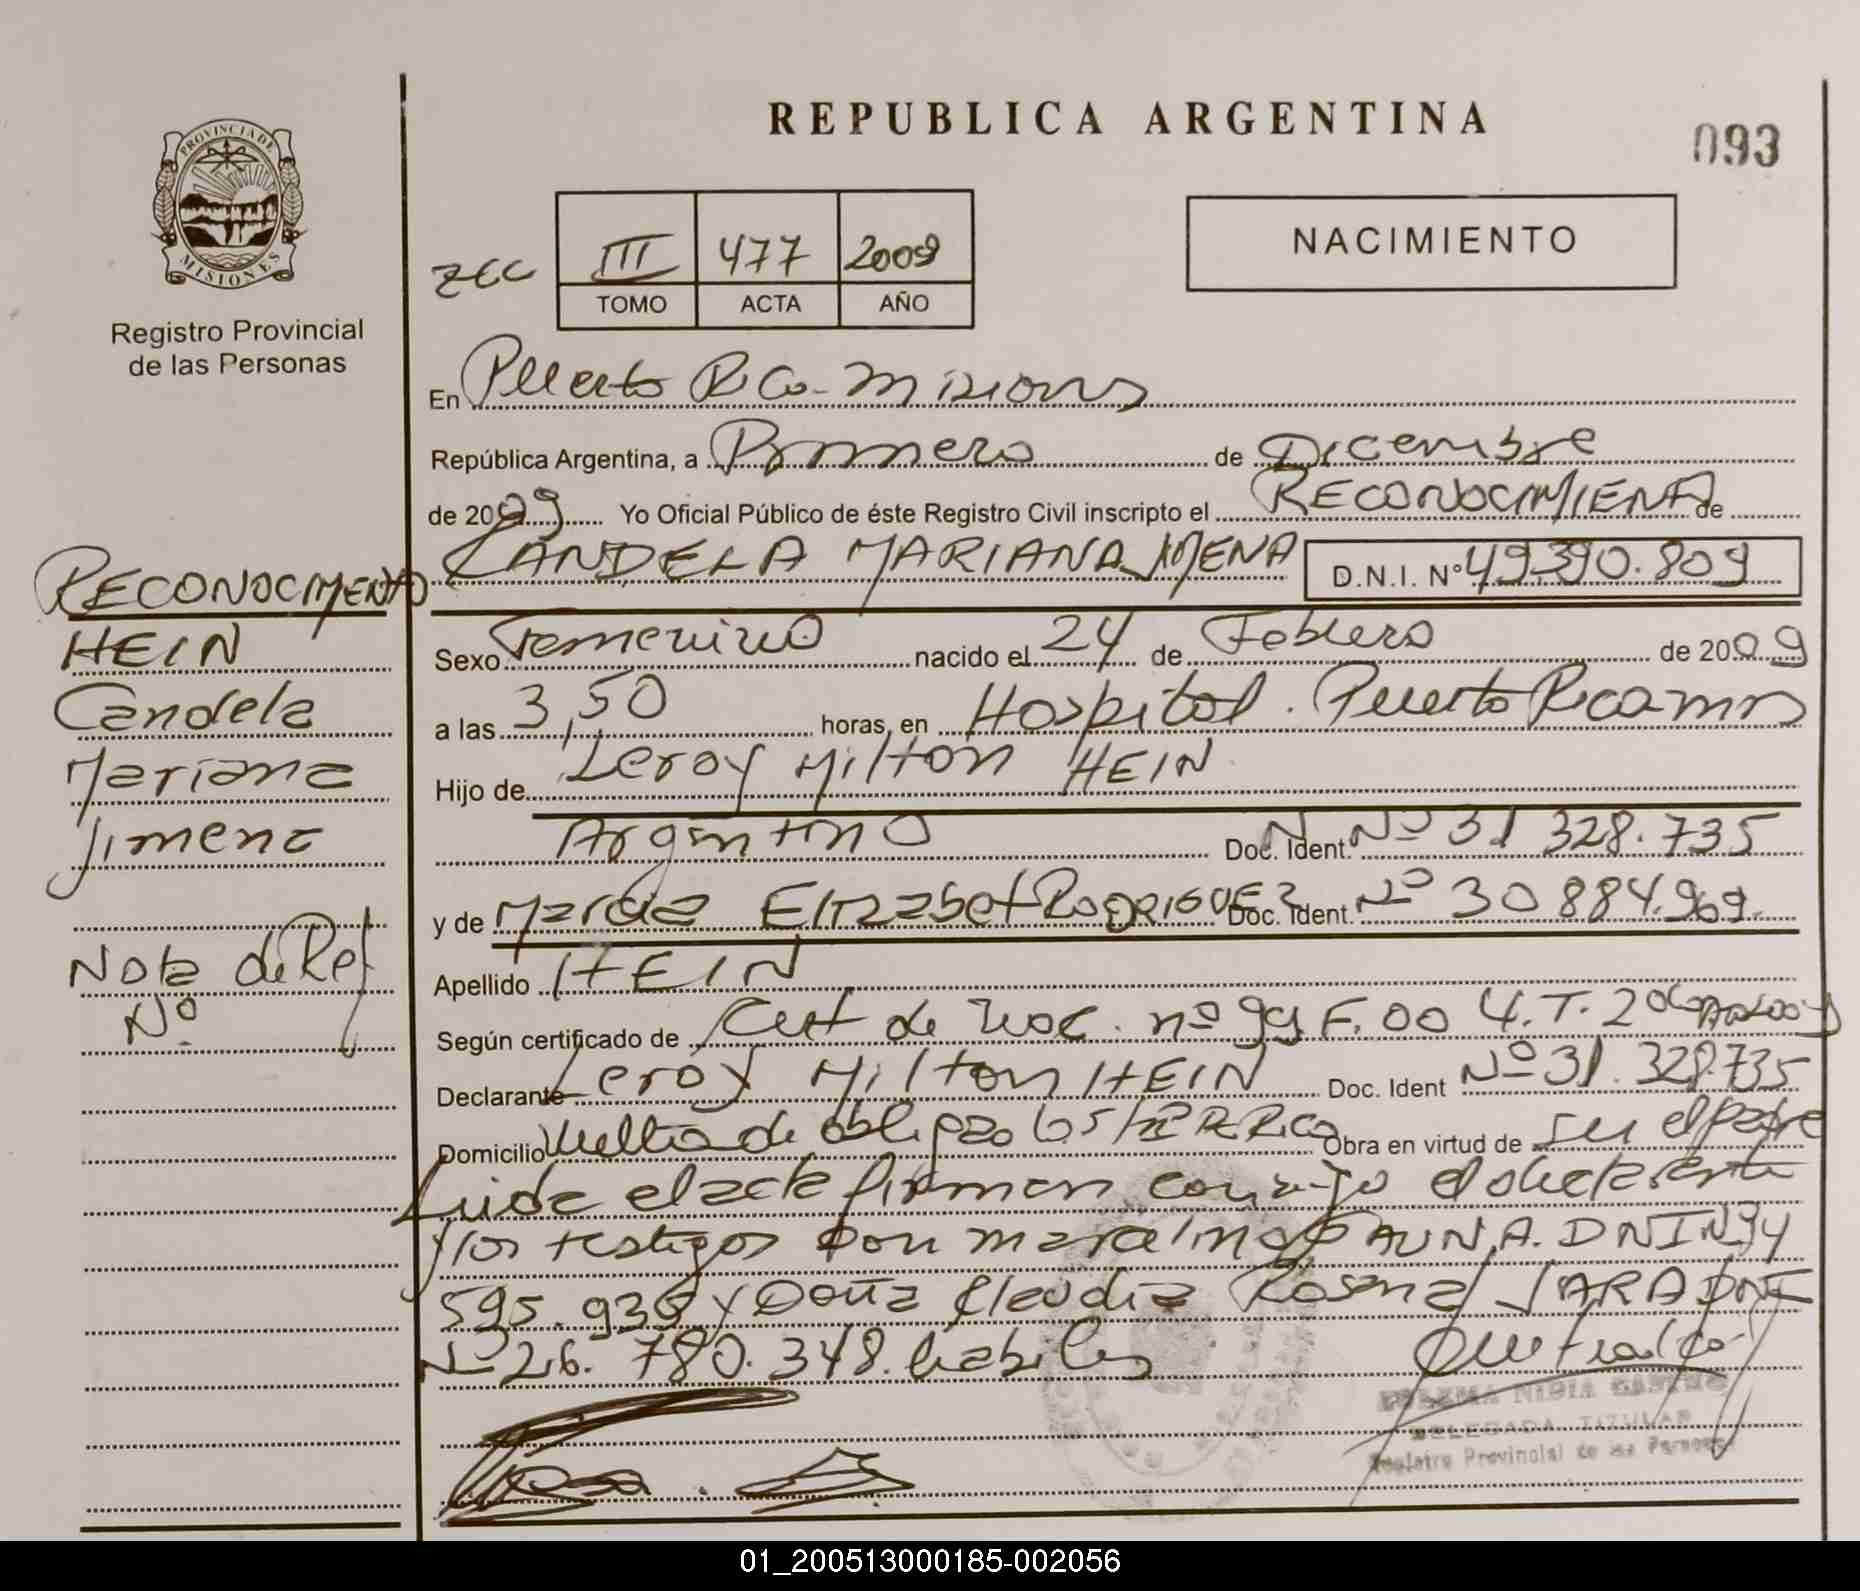 REPUBLICA ARGENTINA
093
PROVINCIA DE
MISIONES
Registro Provincial
de las Personas
NACIMIENTO
III 477 2009
TOMO ACTA AÑO
En Puerto Rico - Misiones
República Argentina, a Primero de Diciembre
de 2009 Yo Oficial Público de éste Registro Civil inscripto el RECONOCIMIENTO de
CANDELA MARIANA JIMENA D.N.I. Nº 49.390.809
Sexo Femenino nacido el 24 de Febrero de 2009
a las 3,50 horas, en Hospital. Puerto Rico
Hijo de Leroy Milton HEIN
Argentino Doc. Ident. Nº 31 328.735
y de Marcia Elizabet RODRIGUEZ Doc. Ident. Nº 30 884.969.
Apellido HEIN
Según certificado de Cert de nac. nº 99 F. 00 4. T. 2
Declarante Leroy Milton HEIN Doc. Ident Nº 31. 328.735
Domicilio Obra en virtud de ser el padre
Leida el acta firman conmigo el declarante
y los testigos Don A. DNI Nº 34
595.936 y Doña Claudia Rosana JARA DNI
Nº 26. 780.348. habiles
DELEGADA TITULAR
Registro Provincial de las Personas
RECONOCIMIENTO
HEIN
Candela
Mariana
Jimena
Nota de Ref
Nº
01_200513000185-002056